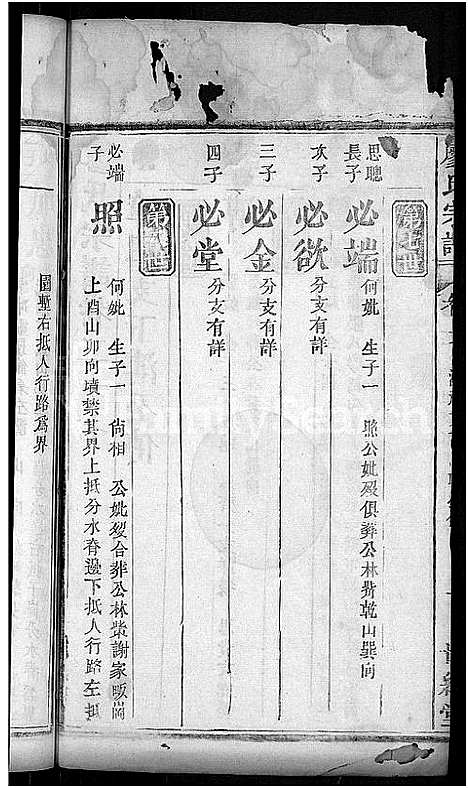 廖氏宗譜
第七世
思聰長子 必端 何妣 生子一 照公妣歿俱葬公林 乾山巽向
次子 必欲 分支有詳
三子 必金 分支有詳
四子 必堂 分支有詳
第八世
必端子 照 何妣 生子一 尙相 公妣歿合葬公林 謝家畈崗
上酉山卯向墳禁其界上抵分水脊邊下抵人行路左抵
園塹右抵人行路爲界